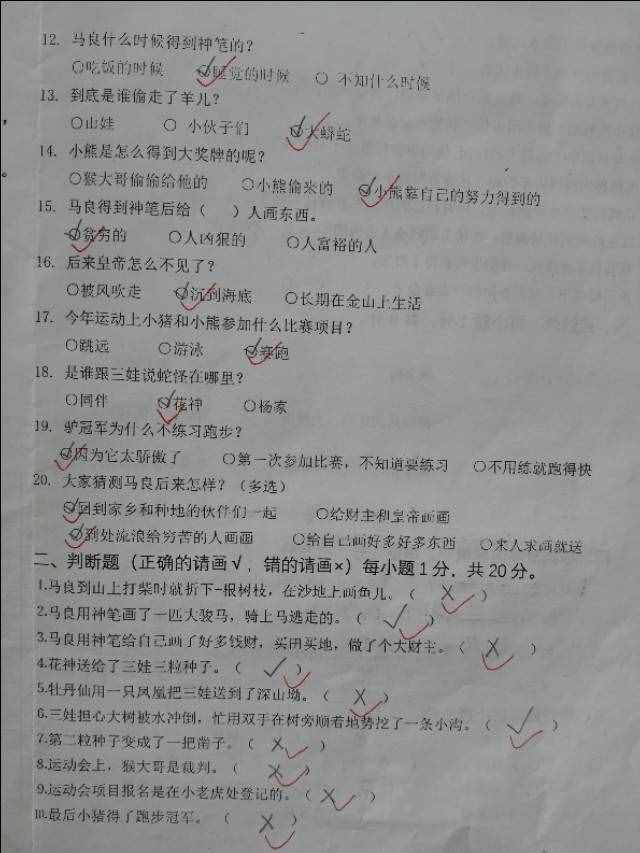 12. 马良什么时候得到神笔的？
○吃饭的时候 ○睡觉的时候 ○ 不知什么时候
13. 到底是谁偷走了羊儿？
○山娃 ○ 小伙子们 ○大蟒蛇
14. 小熊是怎么得到大奖牌的呢？
○猴大哥偷偷给他的 ○小熊偷来的 ○小熊靠自己的努力得到的
15. 马良得到神笔后给（ ）人画东西。
○贫穷的 ○人凶狠的 ○人富裕的人
16. 后来皇帝怎么不见了？
○被风吹走 ○沉到海底 ○长期在金山上生活
17. 今年运动上小猪和小熊参加什么比赛项目？
○跳远 ○游泳 ○赛跑
18. 是谁跟三娃说蛇怪在哪里？
○同伴 ○花神 ○杨家
19. 驴冠军为什么不练习跑步？
○因为它太骄傲了 ○第一次参加比赛，不知道要练习 ○不用练就跑得快
20. 大家猜测马良后来怎样？（多选）
○回到家乡和种地的伙伴们一起 ○给财主和皇帝画画
○到处流浪给穷苦的人画画 ○给自己画好多好多东西 ○来人求画就送
二、判断题（正确的请画√，错的请画×）每小题1分，共20分。
1.马良到山上打柴时就折下一根树枝，在沙地上画鱼儿。（ × ）
2.马良用神笔画了一匹大骏马，骑上马逃走的。（ √ ）
3.马良用神笔给自己画了好多钱财，买田买地，做了个大财主。（ × ）
4.花神送给了三娃三粒种子。（ √ ）
5.牡丹仙用一只凤凰把三娃送到了深山坳。（ × ）
6.三娃担心大树被水冲倒，忙用双手在树旁顺着地势挖了一条小沟。（ √ ）
7.第二粒种子变成了一把凿子。（ × ）
8.运动会上，猴大哥是裁判。（ × ）
9.运动会项目报名是在小老虎处登记的。（ × ）
10.最后小猪得了跑步冠军。（ × ）